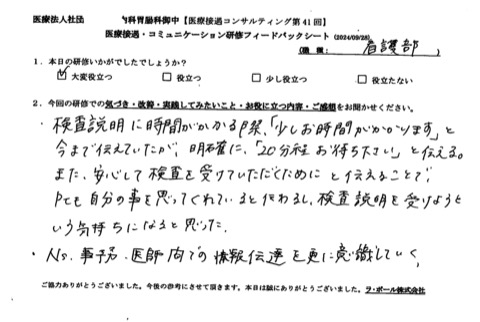 医療法人社団 内科胃腸科御中【医療接遇コンサルティング第41回】
医療接遇・コミュニケーション研修フィードバックシート (2024/09/28)
(職種: 看護部 )
1.本日の研修いかがでしたでしょうか?
☑大変役立つ □役立つ □少し役立つ □役立たない
2.今回の研修での気づき・改善・実践してみたいこと・お役に立つ内容・ご感想をお聞かせください。
・検査説明に時間がかかる際、「少しお時間がかかります」と
今まで伝えていたが、明確に、「20分程お待ち下さい」と伝える。
また、安心して検査を受けていただくためにと伝えることで、
Ptも自分の事を思ってくれていると伝わるし、検査説明を受けよう
という気持ちになると思った。
・Ns.事務・医師間での情報伝達を更に意識していく。
ご協力ありがとうございました。今後の参考にさせて頂きます。本日は誠にありがとうございました。ラ・ポール株式会社